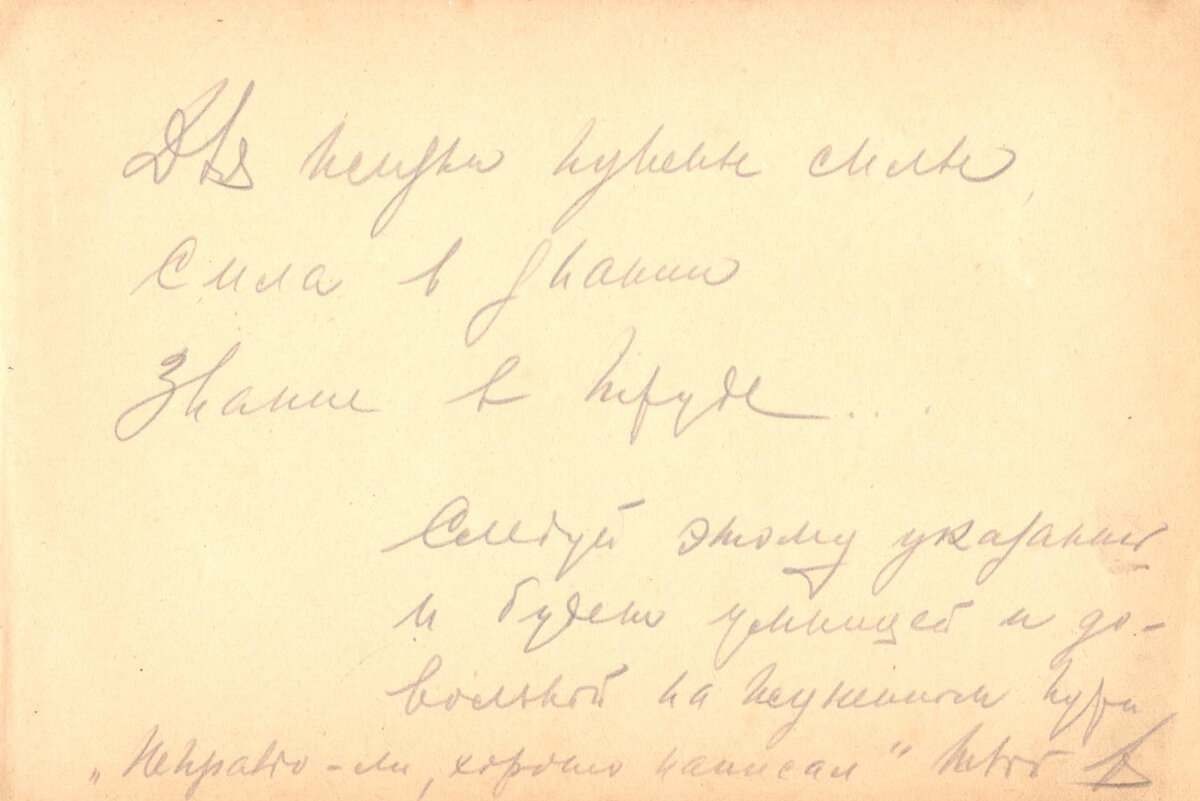 Для жизни нужны силы,
Сила в знании
Знание в труде....
Следуй этому указанию
и будешь умницей и до-
вольной на жизненном пути
„Неправда-ли, хорошо написал" твой